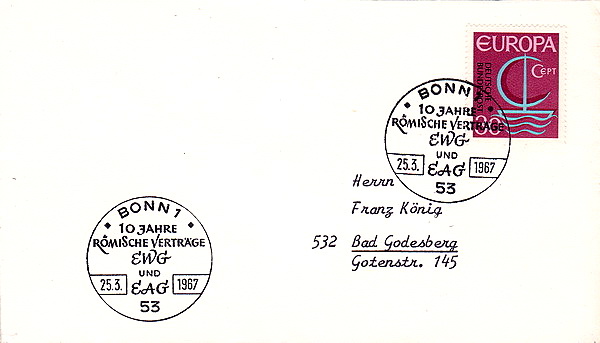 EUROPA
CEPT
DEUTSCHE
BUNDESPOST
30
BONN 1
10 JAHRE
RÖMISCHE VERTRÄGE
EWG
UND
25.3. EAG 1967
53
Herrn
Franz König
532 Bad Godesberg
Gotenstr. 145
BONN 1
10 JAHRE
RÖMISCHE VERTRÄGE
EWG
UND
25.3. EAG 1967
53